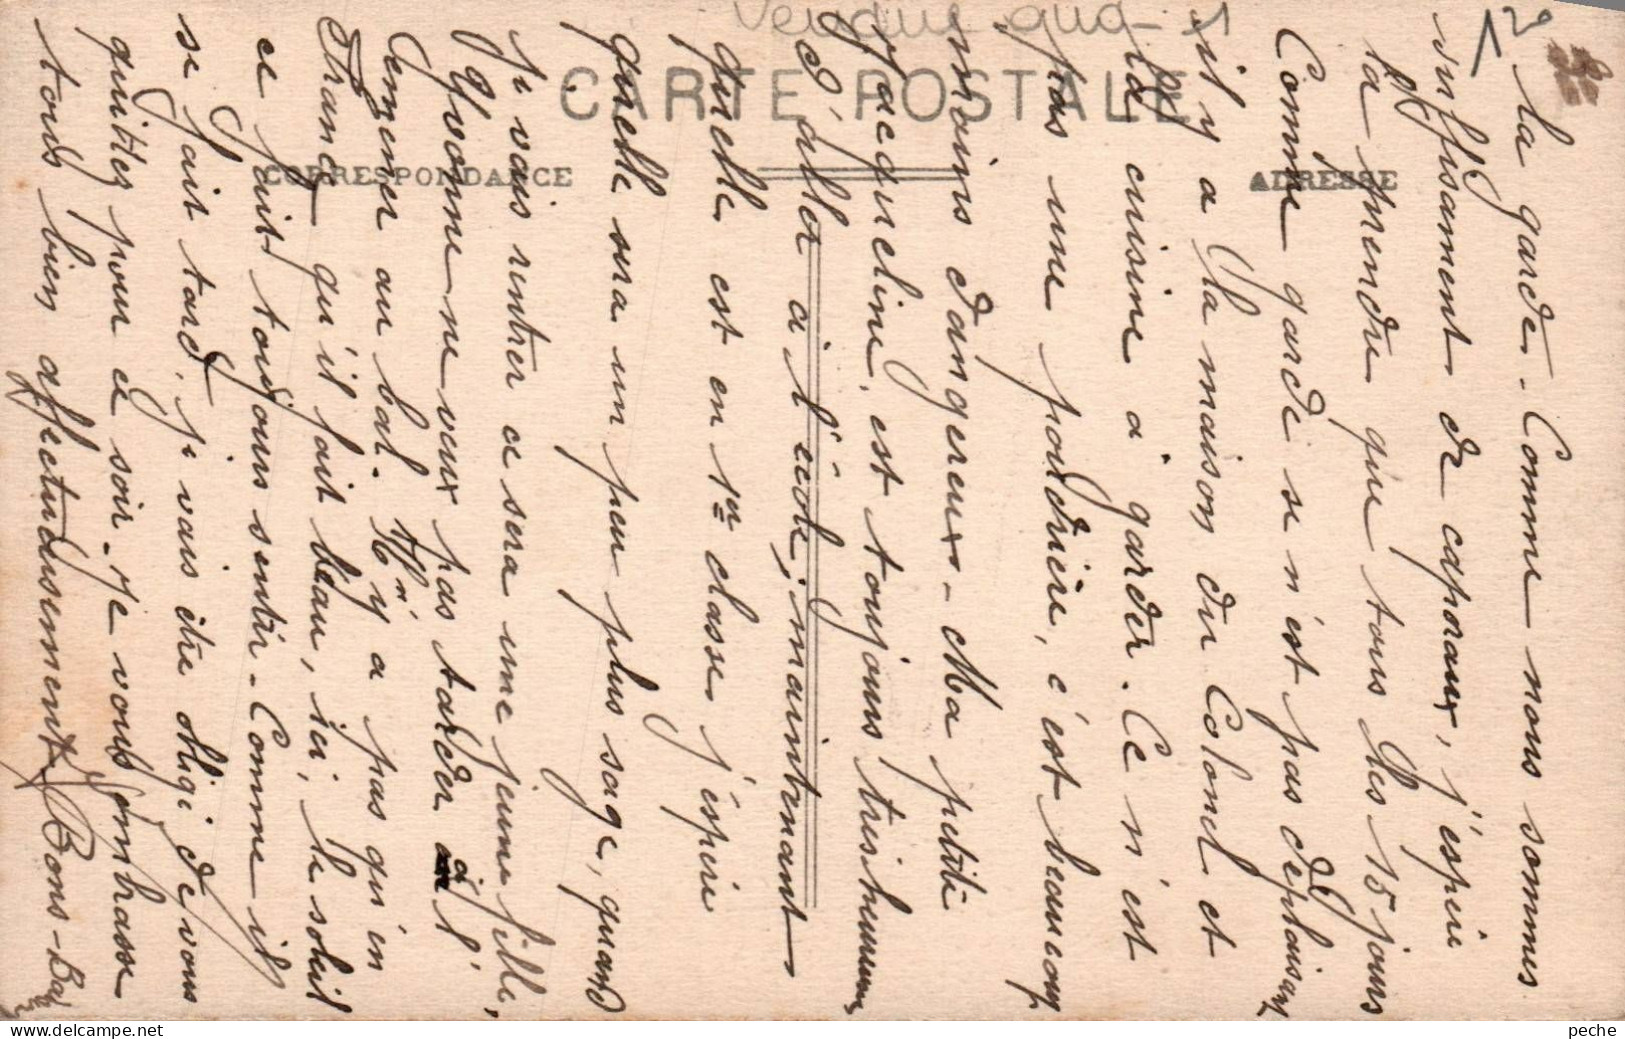 Vendue qua-
12
CARTE POSTALE
CORRESPONDANCE
ADRESSE
la garde. Comme nous sommes
suffisament de caporaux, j'espère
la prendre que tous les 15 jours
Comme garde se n'est pas déplaisant
il y a la maison du Colonel et
la cuisine à garder. Ce n'est
pas une poudrière, c'est beaucoup
moins dangereux - Ma petite
Jacqueline, est toujours très heureuse
d'aller à l'école, maintenant
quelle est en 1re classe j'espère
quelle sera un peu plus sage, quand
je vais rentrer ce sera une jeune fille,
Yvonne ne veux pas tarder à l'
emener au bal. Il n'y a pas qu'en
France qu'il fait beau, ici, le soleil
ce fait toujours sentir - Comme il
se fait tard, je vais être obligé de vous
quittez pour ce soir - Je vous embrasse
tous bien affectueusement Bons-Bai